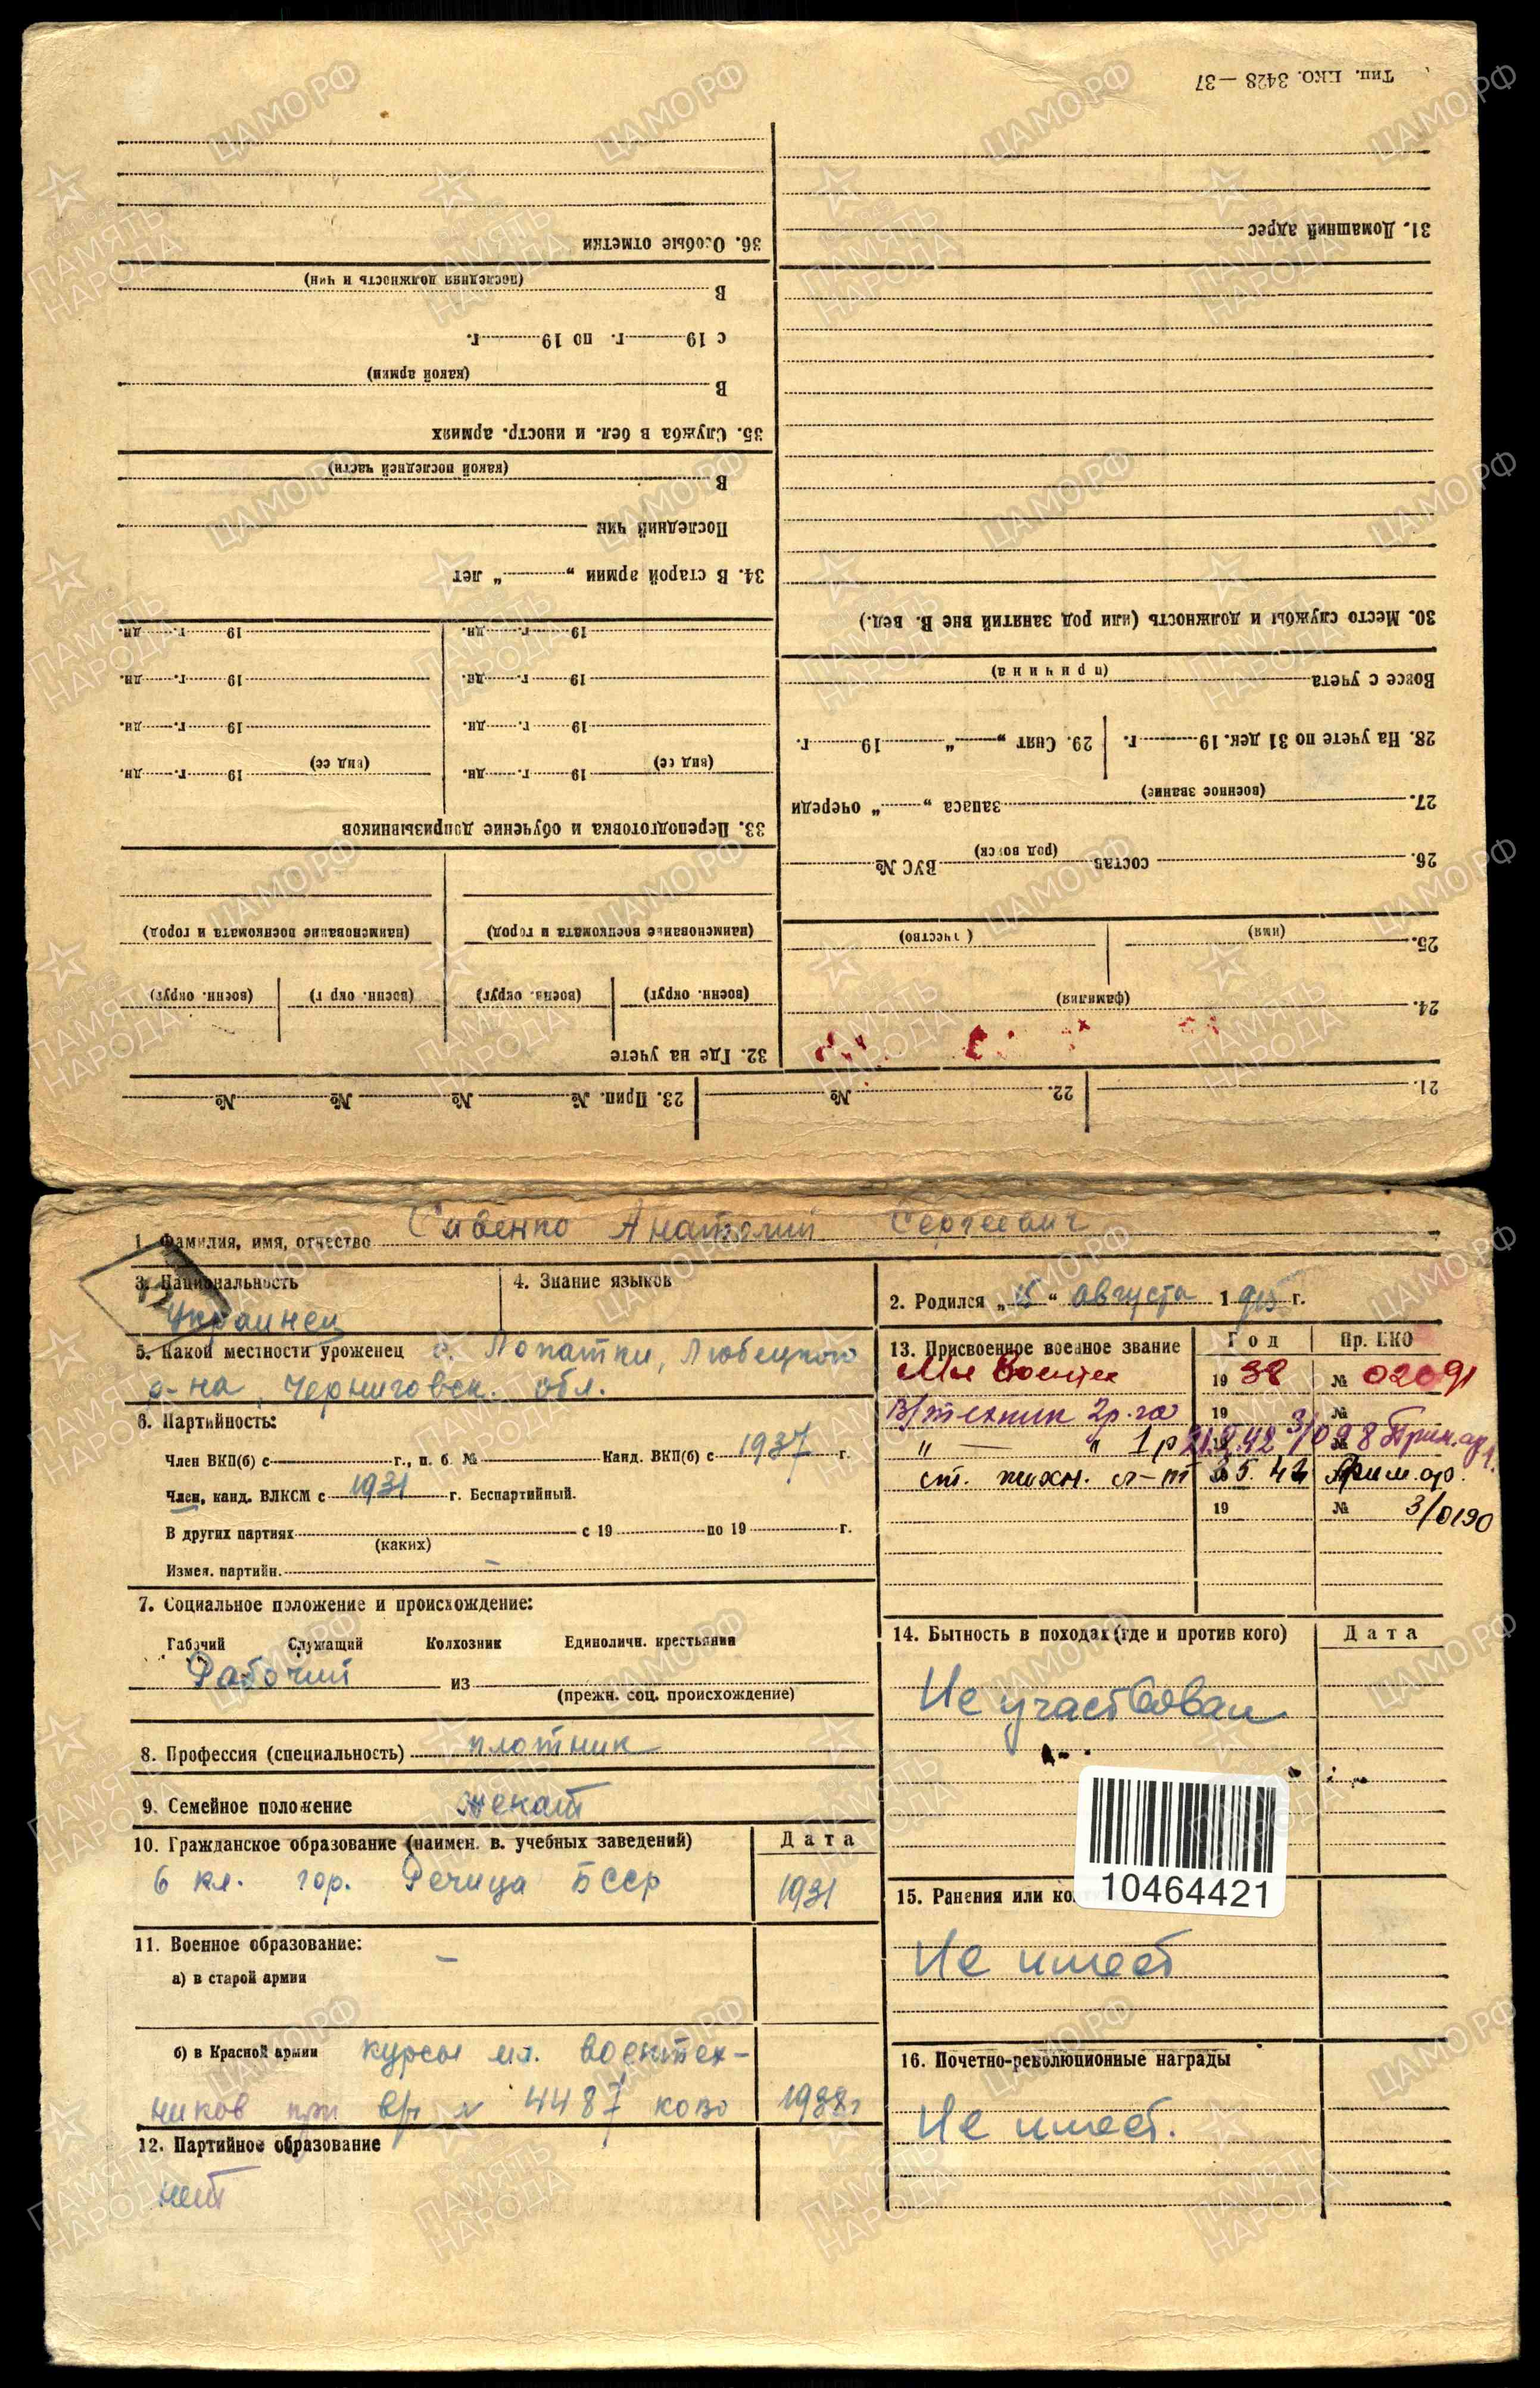 Тип. ЦКО. 3428—37
31. Домашний адрес
30. Место службы и должность (или род занятий вне В. Вед.)
Вовсе с учета
(причина)
28. На учете по 31 дек. 19 г. 29. Снят „ “ 19 г.
27. запаса „ “ очереди
(военное звание)
26. состав ВУС №
(род войск)
25.
(имя) (отчество)
24.
(фамилия)
21. 22. № 23. Прип. № № № №
36. Особые отметки
В
(последняя должность и чин)
с 19 г. по 19 г.
В
(какой армии)
35. Служба в бел. и иностр. армиях
В
(какой последней части)
Последний чин
34. В старой армии „ “ лет
19 г. дн. 19 г. дн.
19 г. дн. 19 г. дн.
19 г. дн. 19 г. дн.
19 г. дн. 19 г. дн.
(вид ее) (вид ее)
33. Переподготовка и обучение допризывников
(наименование военкомата и город) (наименование военкомата и город)
(военн. округ) (военн. округ) (военн. округ) (военн. округ)
32. Где на учете
1. Фамилия, имя, отчество Сивенко Анатолий Сергеевич
3. Национальность 4. Знание языков
Украинец
2. Родился „15“ августа 1915 г.
5. Какой местности уроженец с. Лопатни, Любецкого
р-на, Черниговск. обл.
6. Партийность:
Член ВКП(б) с г., п. б. № Канд. ВКП(б) с 1937 г.
Член, канд. ВЛКСМ с 1931 г. Беспартийный.
В других партиях с 19 по 19 г.
(каких)
Измен. партийн. —
7. Социальное положение и происхождение:
Рабочий Служащий Колхозник Единоличн. крестьянин
Рабочий из
(прежн. соц. происхождение)
8. Профессия (специальность) плотник
9. Семейное положение женат
10. Гражданское образование (наимен. в. учебных заведений) Дата
6 кл. гор. Речица БССР 1931
11. Военное образование:
а) в старой армии —
б) в Красной армии курсы мл. воентех-
ников при в/ч № 4487 КОВО 1938г
12. Партийное образование
нет
13. Присвоенное военное звание Год Пр. НКО
Мл Воентех 19 38 № 02091
В/техник 2р.га 19 №
„ — „ 1р 21.2.42 3/098 Прим.ар.
ст. техн. л-т 5.42 Прим.ар.
19 № 3/0190
14. Бытность в походах (где и против кого) Дата
Не участвовал
10464421
15. Ранения или
Не имеет
16. Почетно-революционные награды
Не имеет.
ЦАМО.РФ
ПАМЯТЬ
НАРОДА